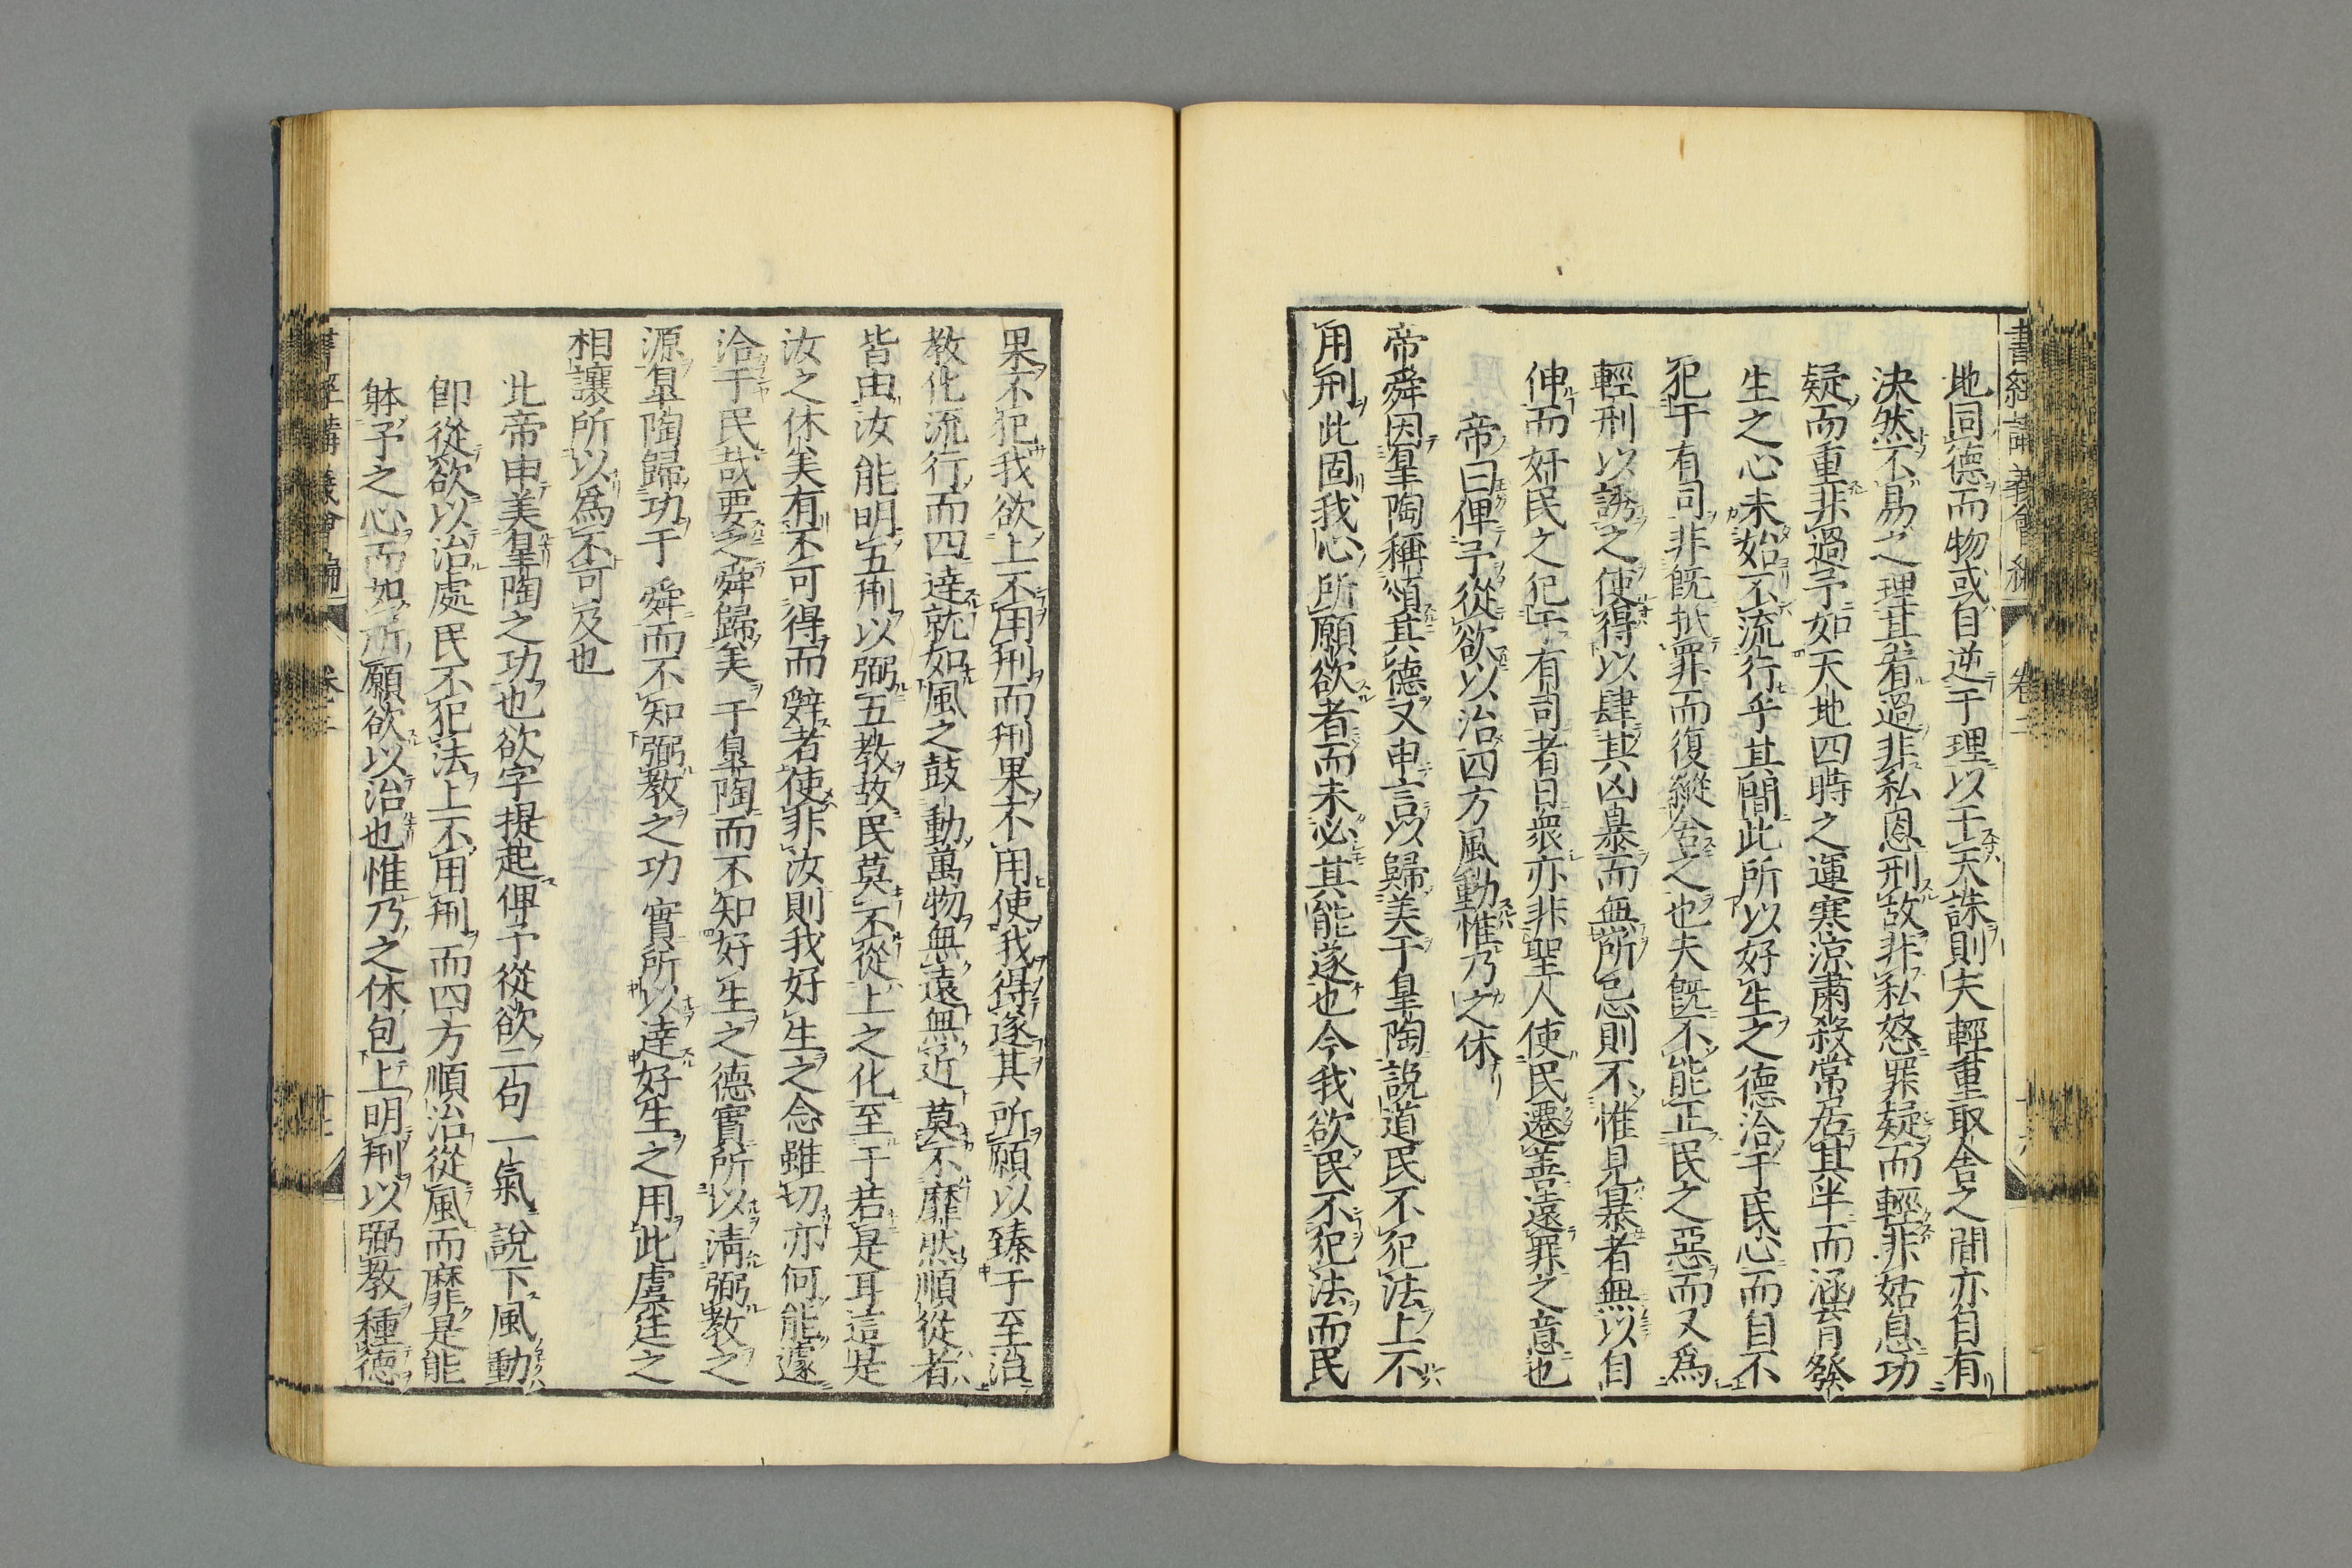 書經講義會編 卷二
地同德而物或自逆于理以干天誅則夫輕重取舍之間亦自有
決然不易之理其宥過非私恩刑故非私怒罪疑而輕非姑息功
疑而重非過予如天地四時之運寒涼肅殺常居其半而涵育發
生之心未始不流行乎其間此所以好生之德洽于民心而自不
犯于有司非旣抵罪而復縱舍之也夫旣不能正民之惡而又爲
輕刑以誘之使得以肆其凶暴而無所忌則不惟見暴者無以自
伸而奸民之犯于有司者日衆亦非聖人使民遷善遠罪之意也
帝曰俾予從欲以治四方風動惟乃之休
帝舜因皐陶稱頌其德又申言以歸美于皐陶說道民不犯法上不
用刑此固我心所願欲者而未必其能遂也今我欲民不犯法而民
果不犯我欲上不用刑而刑果不用使我得遂其所願以臻于至治
教化流行而四達就如風之鼓動萬物無遠無近莫不靡然順從者
皆由汝能明五刑以弼五教故民莫不從上之化至于若是耳這是
汝之休美有不可得而辭者使非汝則我好生之念雖切亦何能遽
洽于民哉要之舜歸美于皐陶而不知好生之德實所以淸弼教之
源皐陶歸功于舜而不知弼教之功實所以達好生之用此虞廷之
相讓所以爲不可及也
此帝申美皐陶之功也欲字提起俾予從欲二句一氣說下風動
卽從欲以治處民不犯法上不用刑而四方順治從風而靡是能
躰予之心而如所願欲以治也惟乃之休包上明刑以弼教種德
書經講義會編 卷二 十七